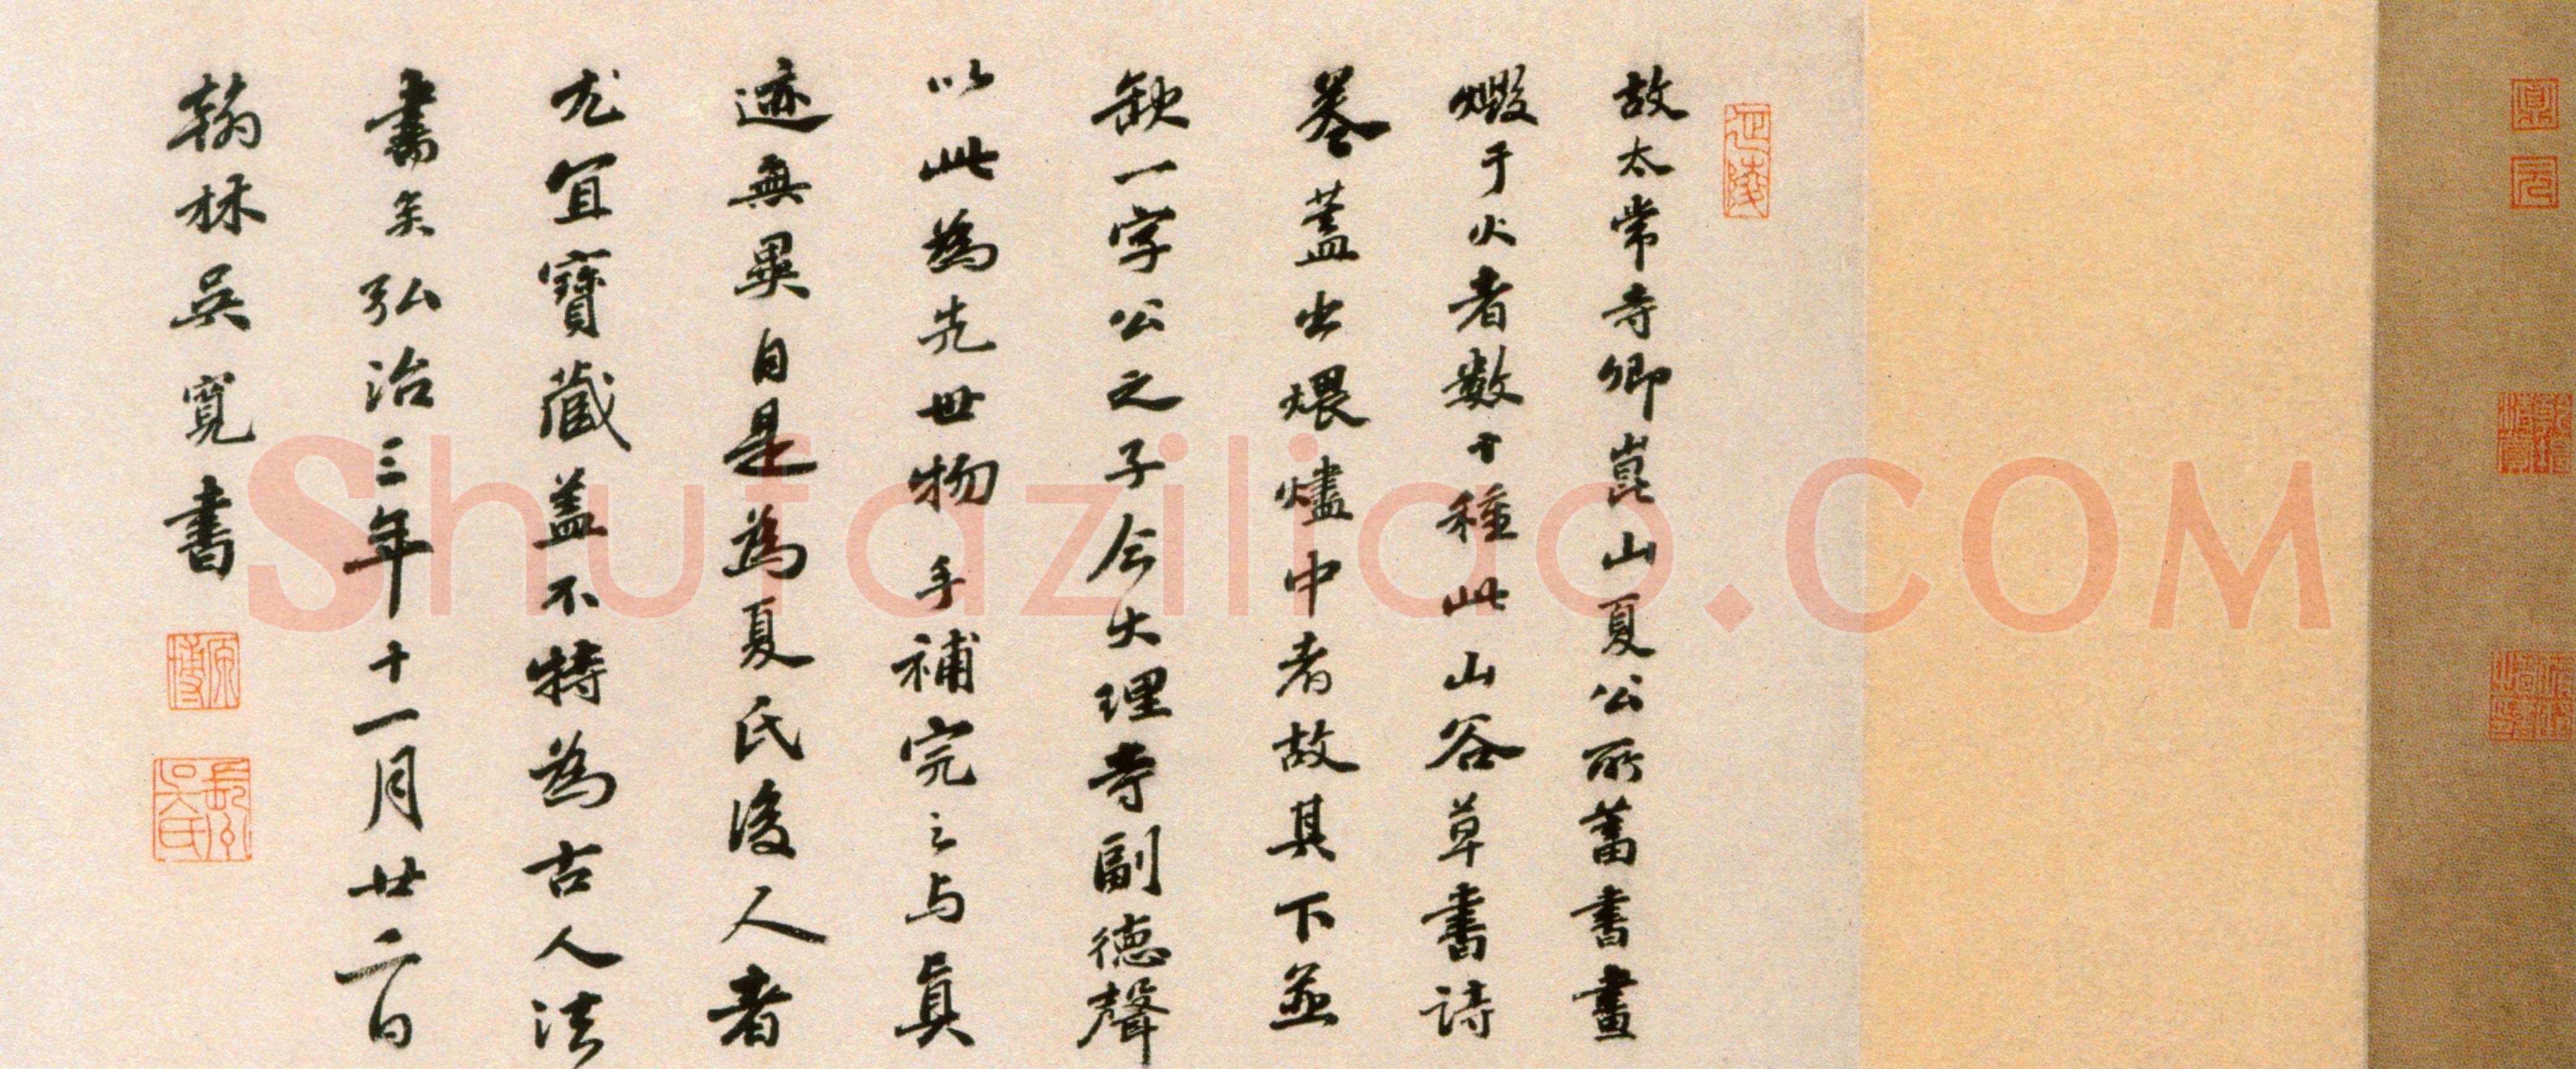 故太常寺卿崑山夏公所蓄書畫
燬于火者數十種此山谷草書詩
卷蓋出煨燼中者故其下並
缺一字公之子今大理寺副德聲
以此為先世物手補完之与真
迹無異自是為夏氏後人者
尤宜寶藏盖不特為古人法
書矣弘治三年十一月廿二日
翰林吳寬書
原博
Shufaziliao.COM